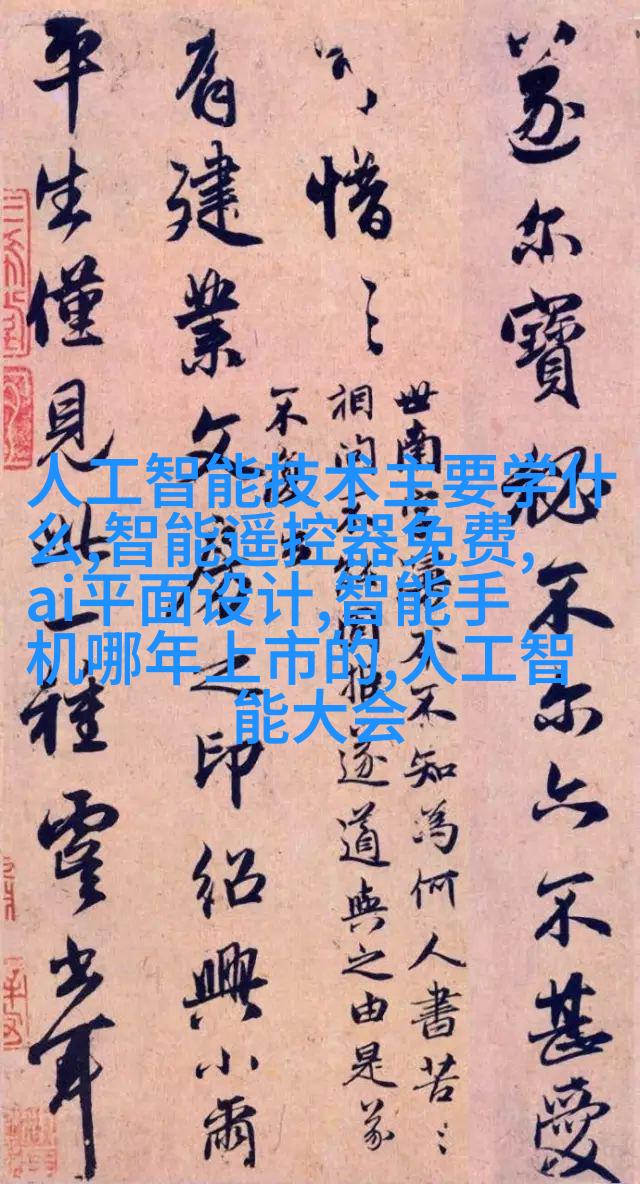 人工智能技术主要学什
么,智能遥控器免费,
ai平面设计,智能手
机哪年上市的,人工智
能大会
遂尔寶秘不尔亦不甚愛
世南不知為何人書苦〻
相因报遂道與之由是
不
惜〻
有建業文房之印紹興小爾
平生僅見此一種書耳